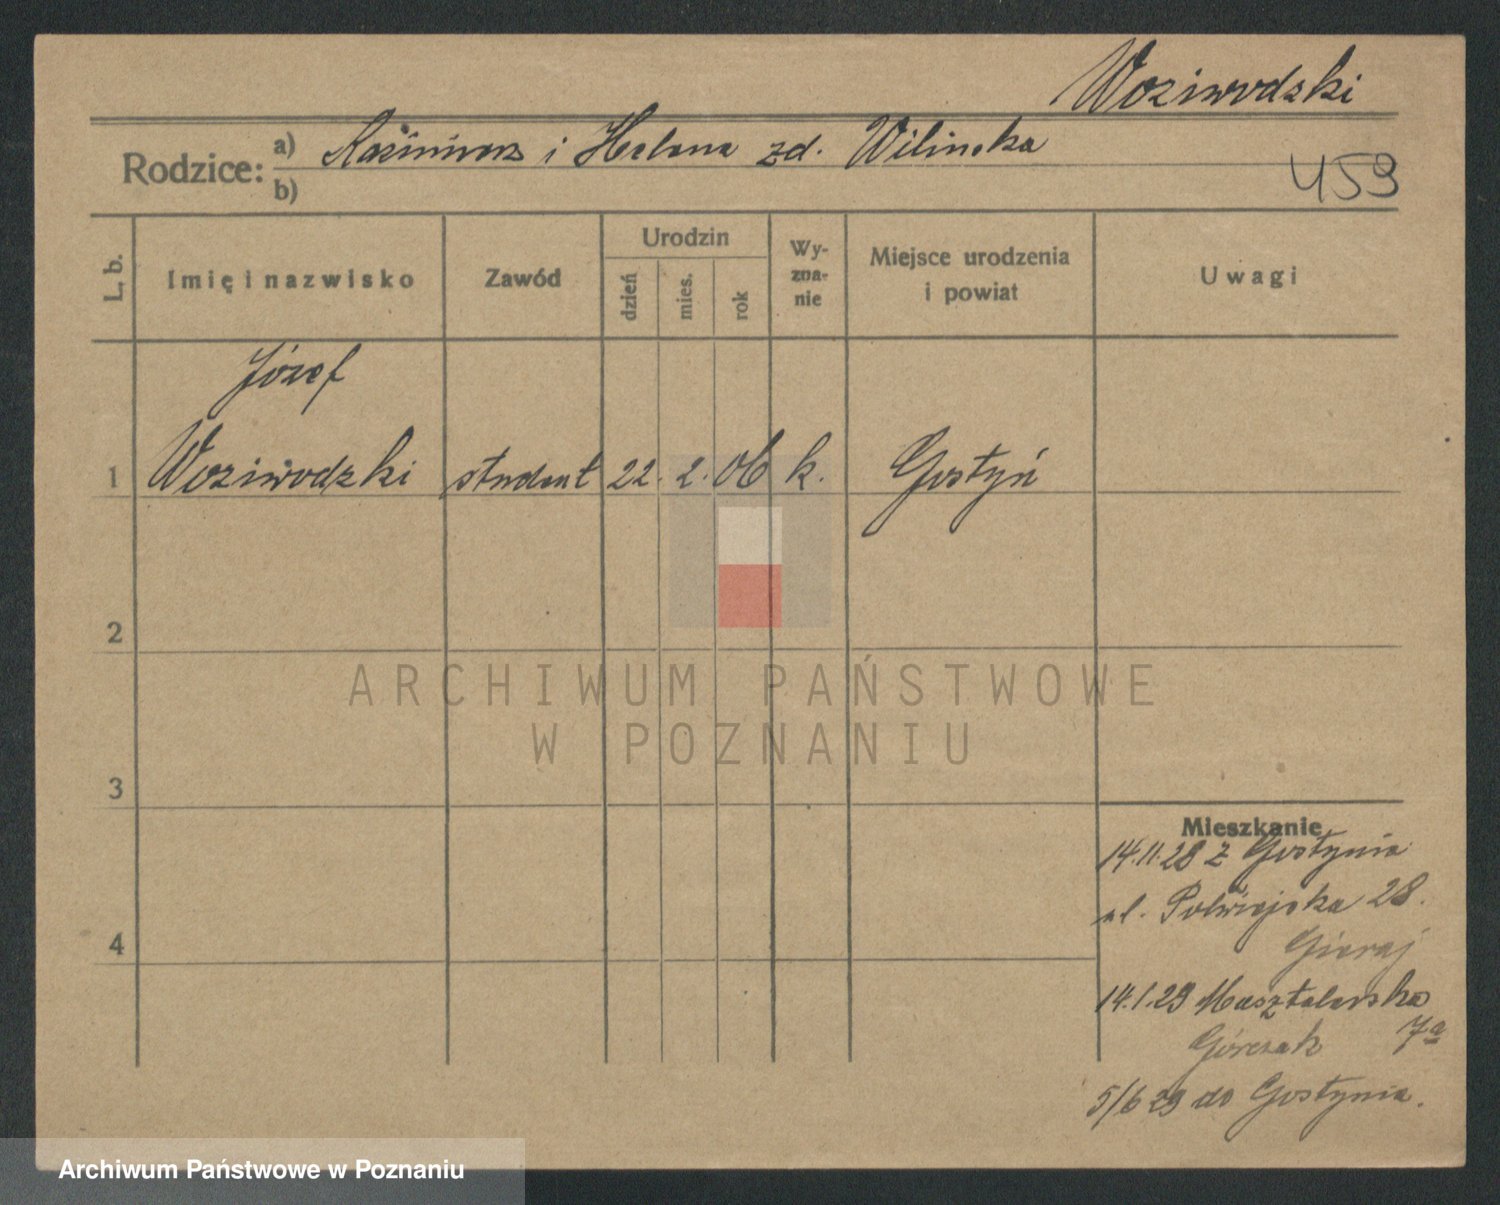 Woziwodzki
Rodzice: a) Kazimierz i Helena zd. Wilińska
b)
459
L. b.
Imię i nazwisko
Zawód
Urodzin
dzień
mies.
rok
Wy-
zna-
nie
Miejsce urodzenia
i powiat
Uwagi
Józef
1 Woziwodzki student 22. 2. 06 k. Gostyń
2
ARCHIWUM PAŃSTWOWE
W POZNANIU
3
Mieszkanie
14.11.28 z Gostynia
ul. Półwiejska 28.
Gieraj
4
14.1.29 Masztalarska
7a
Górczak
5/6 29 do Gostynia.
Archiwum Państwowe w Poznaniu